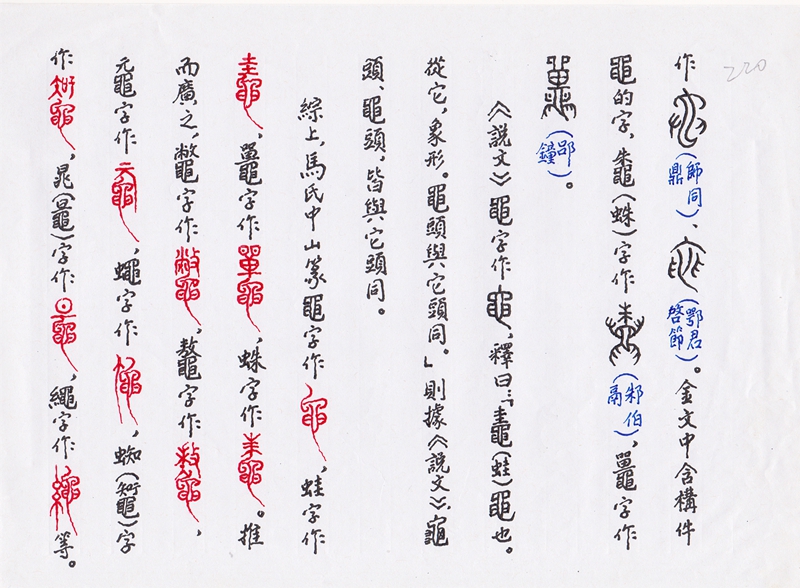 220
作(師同鼎)、(鄂君啓節)。金文中含構件
黽的字,朱黽(蛛)字作(邾伯鬲),鼉字作
(郘鐘)。
《說文》黽字作,釋曰:「鼃(蛙)黽也。
從它,象形。黽頭與它頭同。」則據《說文》,龜
頭、黽頭,皆與它頭同。
綜上,馬氏中山篆黽字作,蛙字作
,鼉字作,蛛字作。推
而廣之,鼈字作,鼇字作,
元黽字作,蠅字作,蜘(䵹)字
作,晁(鼂)字作,繩字作等。